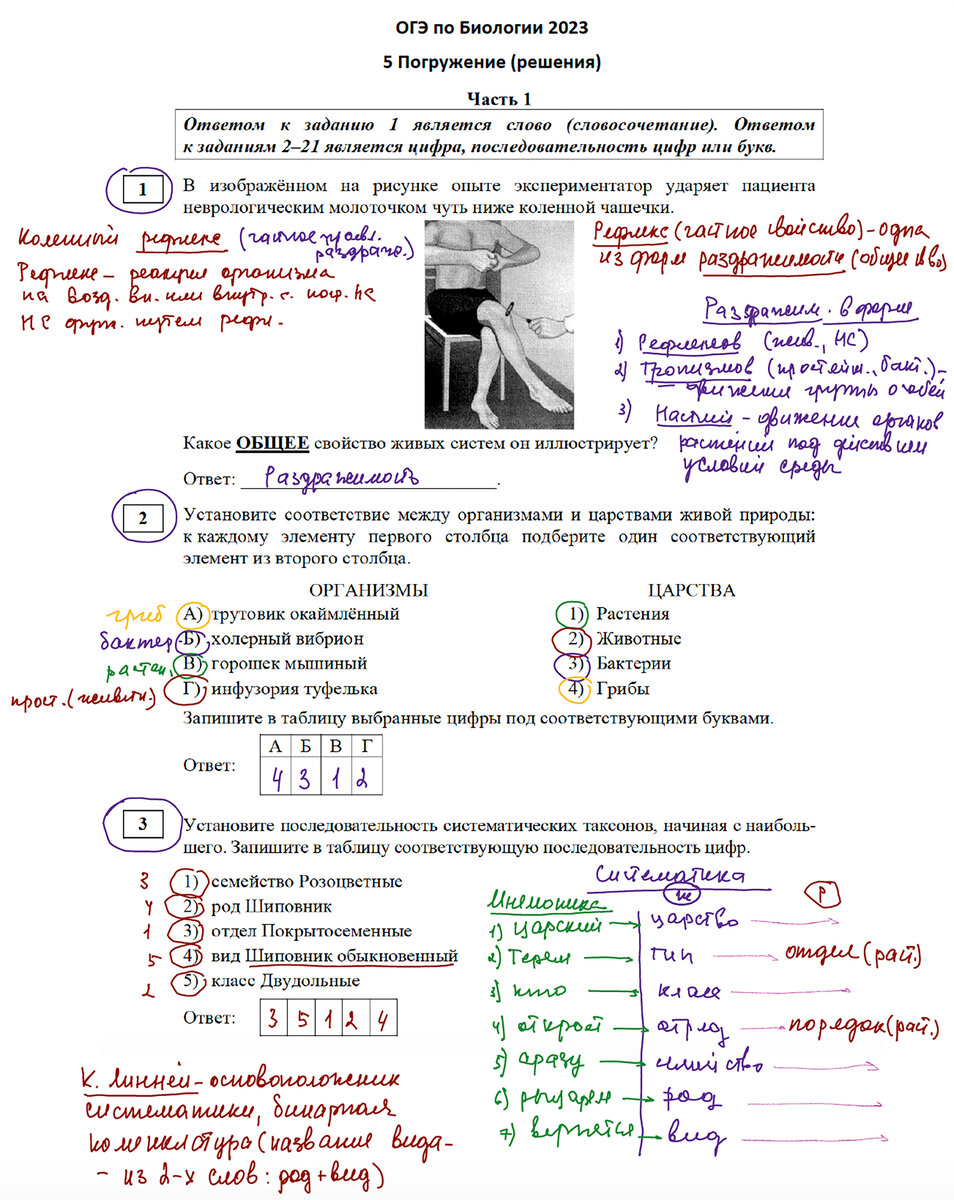 ОГЭ по Биологии 2023
5 Погружение (решения)
Часть 1
Ответом к заданию 1 является слово (словосочетание). Ответом
к заданиям 2–21 является цифра, последовательность цифр или букв.
1
В изображённом на рисунке опыте экспериментатор ударяет пациента
неврологическим молоточком чуть ниже коленной чашечки.
Коленный рефлекс (частное проявл.
раздраж.)
Рефлекс – реакция организма
на возд. вн. или внутр. с. поср. НС
НС функ. путем рефл.
Рефлекс (частное свойство) – одна
из форм раздражимости (общее св-во)
Раздражим. в форме
1) Рефлексов (жив., НС)
2) Тропизмов (простейш., бакт.) –
– движения группы особей
3) Настий – движение органов
растений под действием
условий среды
Какое ОБЩЕЕ свойство живых систем он иллюстрирует?
Ответ: Раздражимость.
2
Установите соответствие между организмами и царствами живой природы:
к каждому элементу первого столбца подберите один соответствующий
элемент из второго столбца.
ОРГАНИЗМЫ ЦАРСТВА
гриб А) трутовик окаймлённый 1) Растения
бактер Б) холерный вибрион 2) Животные
растен. В) горошек мышиный 3) Бактерии
прост. (животн.) Г) инфузория туфелька 4) Грибы
Запишите в таблицу выбранные цифры под соответствующими буквами.
А Б В Г
Ответ: 4 3 1 2
3
Установите последовательность систематических таксонов, начиная с наиболь-
шего. Запишите в таблицу соответствующую последовательность цифр.
3 1) семейство Розоцветные
4 2) род Шиповник
1 3) отдел Покрытосеменные
5 4) вид Шиповник обыкновенный
2 5) класс Двудольные
Ответ: 3 5 1 2 4
Систематика
Мнемоника ж р
1) Царский царство
2) Терем тип отдел (раст.)
3) кто класс
4) откроет отряд порядок (раст.)
5) сразу семейство
6) рыцарем род
7) вернется вид
К. Линней – основоположник
систематики, бинарная
номенклатура (название вида –
– из 2-х слов: род + вид)